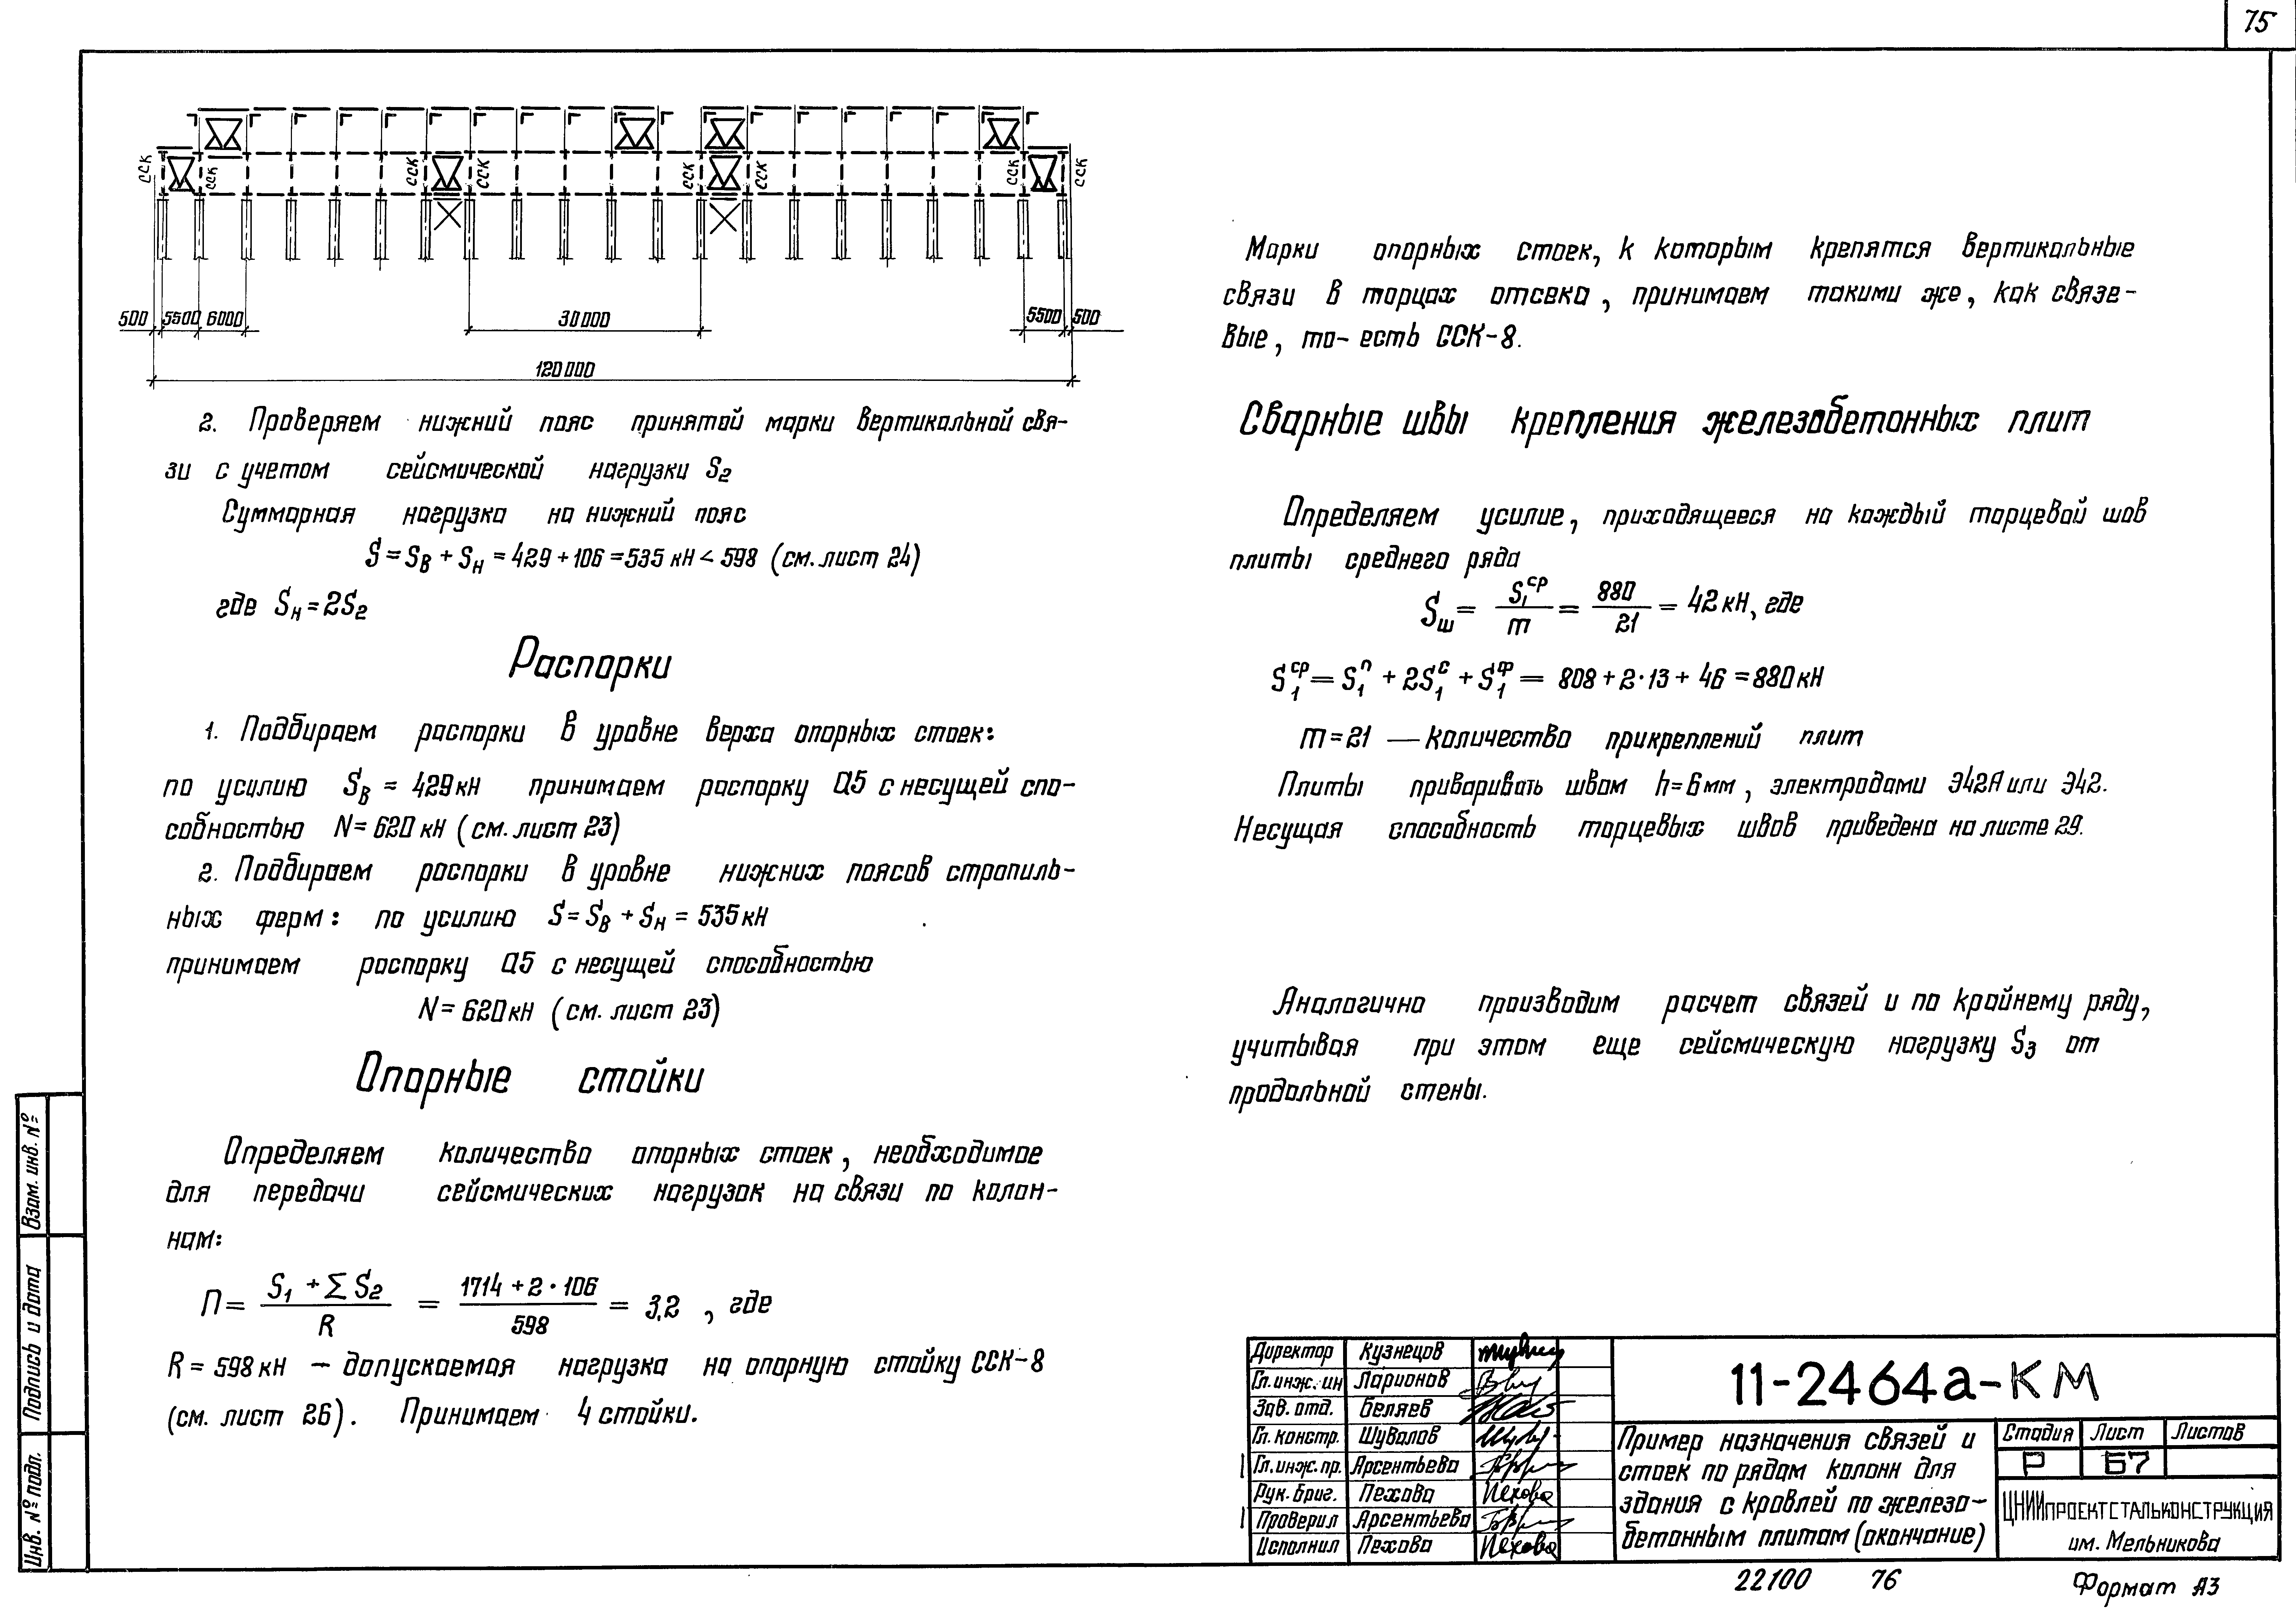 75
ССК
ССК
ССК
ССК
ССК
ССК
ССК
ССК
500 5500 6000 30000 5500 500
120000
2. Проверяем нижний пояс принятой марки вертикальной свя-
зи с учетом сейсмической нагрузки S₂
Суммарная нагрузка на нижний пояс
S = Sв + Sн = 429 + 106 = 535 кН < 598 (см. лист 24)
где Sн = 2S₂
Распорки
1. Подбираем распорки в уровне верха опорных стоек:
по усилию Sв = 429 кН принимаем распорку Q5 с несущей спо-
собностью N = 620 кН (см. лист 23)
2. Подбираем распорки в уровне нижних поясов стропиль-
ных ферм: по усилию S = Sв + Sн = 535 кН
принимаем распорку Q5 с несущей способностью
N = 620 кН (см. лист 23)
Опорные стойки
Определяем количество опорных стоек, необходимое
для передачи сейсмических нагрузок на связи по колон-
нам:
n = (S₁ + ΣS₂) / R = (1714 + 2 · 106) / 598 = 3,2, где
R = 598 кН – допускаемая нагрузка на опорную стойку ССК-8
(см. лист 26). Принимаем 4 стойки.
Марки опорных стоек, к которым крепятся вертикальные
связи в торцах отсека, принимаем такими же, как связе-
вые, то-есть ССК-8.
Сварные швы крепления железобетонных плит
Определяем усилие, приходящееся на каждый торцевой шов
плиты среднего ряда
Sш = S₁ᶜᵖ / m = 880 / 21 = 42 кН, где
S₁ᶜᵖ = S₁ⁿ + 2S₁ᶜ + S₁ᶲ = 808 + 2·13 + 46 = 880 кН
m = 21 — количество прикреплений плит
Плиты приваривать швом h = 6 мм, электродами Э42А или Э42.
Несущая способность торцевых швов приведена на листе 29.
Аналогично производим расчет связей и по крайнему ряду,
учитывая при этом еще сейсмическую нагрузку S₃ от
продольной стены.
Взам. инв. №
Подпись и дата
Инв. № подл.
Директор Кузнецов
Гл. инж. ин Ларионов
Зав. отд. Беляев
Гл. констр. Шувалов
Гл. инж. пр. Арсентьева
Рук. бриг. Пехова Пехова
Проверил Арсентьева
Исполнил Пехова Пехова
11-2464а-КМ
Пример назначения связей и
стоек по рядам колонн для
здания с кровлей по железо-
бетонным плитам (окончание)
Стадия Лист Листов
Р 67
ЦНИИПРОЕКТСТАЛЬКОНСТРУКЦИЯ
им. Мельникова
22100 76
Формат А3